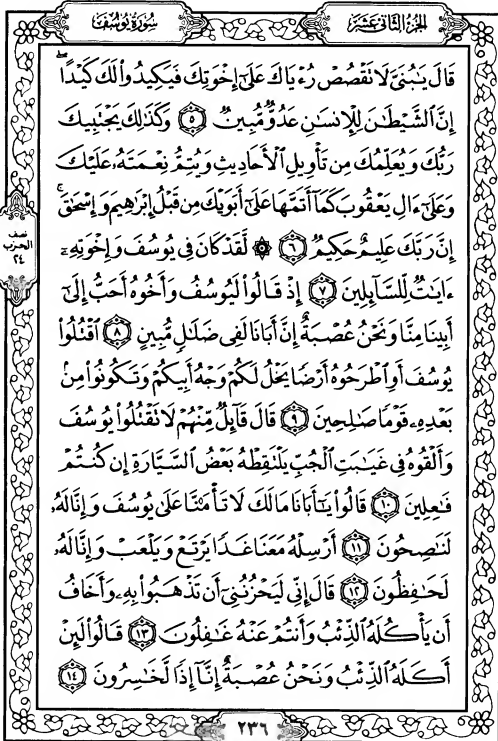 الجزء الثاني عشر
سورة يوسف
قَالَ يَٰبُنَىَّ لَا تَقْصُصْ رُءْيَاكَ عَلَىٰٓ إِخْوَتِكَ فَيَكِيدُوا۟ لَكَ كَيْدًا ۖ
إِنَّ ٱلشَّيْطَٰنَ لِلْإِنسَٰنِ عَدُوٌّ مُّبِينٌ ٥ وَكَذَٰلِكَ يَجْتَبِيكَ
رَبُّكَ وَيُعَلِّمُكَ مِن تَأْوِيلِ ٱلْأَحَادِيثِ وَيُتِمُّ نِعْمَتَهُۥ عَلَيْكَ
وَعَلَىٰٓ ءَالِ يَعْقُوبَ كَمَآ أَتَمَّهَا عَلَىٰٓ أَبَوَيْكَ مِن قَبْلُ إِبْرَٰهِيمَ وَإِسْحَٰقَ ۚ
نصف
الحزب
٢٤
إِنَّ رَبَّكَ عَلِيمٌ حَكِيمٌ ٦ ۞ لَّقَدْ كَانَ فِى يُوسُفَ وَإِخْوَتِهِۦٓ
ءَايَٰتٌ لِّلسَّآئِلِينَ ٧ إِذْ قَالُوا۟ لَيُوسُفُ وَأَخُوهُ أَحَبُّ إِلَىٰٓ
أَبِينَا مِنَّا وَنَحْنُ عُصْبَةٌ إِنَّ أَبَانَا لَفِى ضَلَٰلٍ مُّبِينٍ ٨ ٱقْتُلُوا۟
يُوسُفَ أَوِ ٱطْرَحُوهُ أَرْضًا يَخْلُ لَكُمْ وَجْهُ أَبِيكُمْ وَتَكُونُوا۟ مِنۢ
بَعْدِهِۦ قَوْمًا صَٰلِحِينَ ٩ قَالَ قَآئِلٌ مِّنْهُمْ لَا تَقْتُلُوا۟ يُوسُفَ
وَأَلْقُوهُ فِى غَيَٰبَتِ ٱلْجُبِّ يَلْتَقِطْهُ بَعْضُ ٱلسَّيَّارَةِ إِن كُنتُمْ
فَٰعِلِينَ ١٠ قَالُوا۟ يَٰٓأَبَانَا مَا لَكَ لَا تَأْمَ۫نَّا عَلَىٰ يُوسُفَ وَإِنَّا لَهُۥ
لَنَٰصِحُونَ ١١ أَرْسِلْهُ مَعَنَا غَدًا يَرْتَعْ وَيَلْعَبْ وَإِنَّا لَهُۥ
لَحَٰفِظُونَ ١٢ قَالَ إِنِّى لَيَحْزُنُنِىٓ أَن تَذْهَبُوا۟ بِهِۦ وَأَخَافُ
أَن يَأْكُلَهُ ٱلذِّئْبُ وَأَنتُمْ عَنْهُ غَٰفِلُونَ ١٣ قَالُوا۟ لَئِنْ
أَكَلَهُ ٱلذِّئْبُ وَنَحْنُ عُصْبَةٌ إِنَّآ إِذًا لَّخَٰسِرُونَ ١٤
٢٣٦